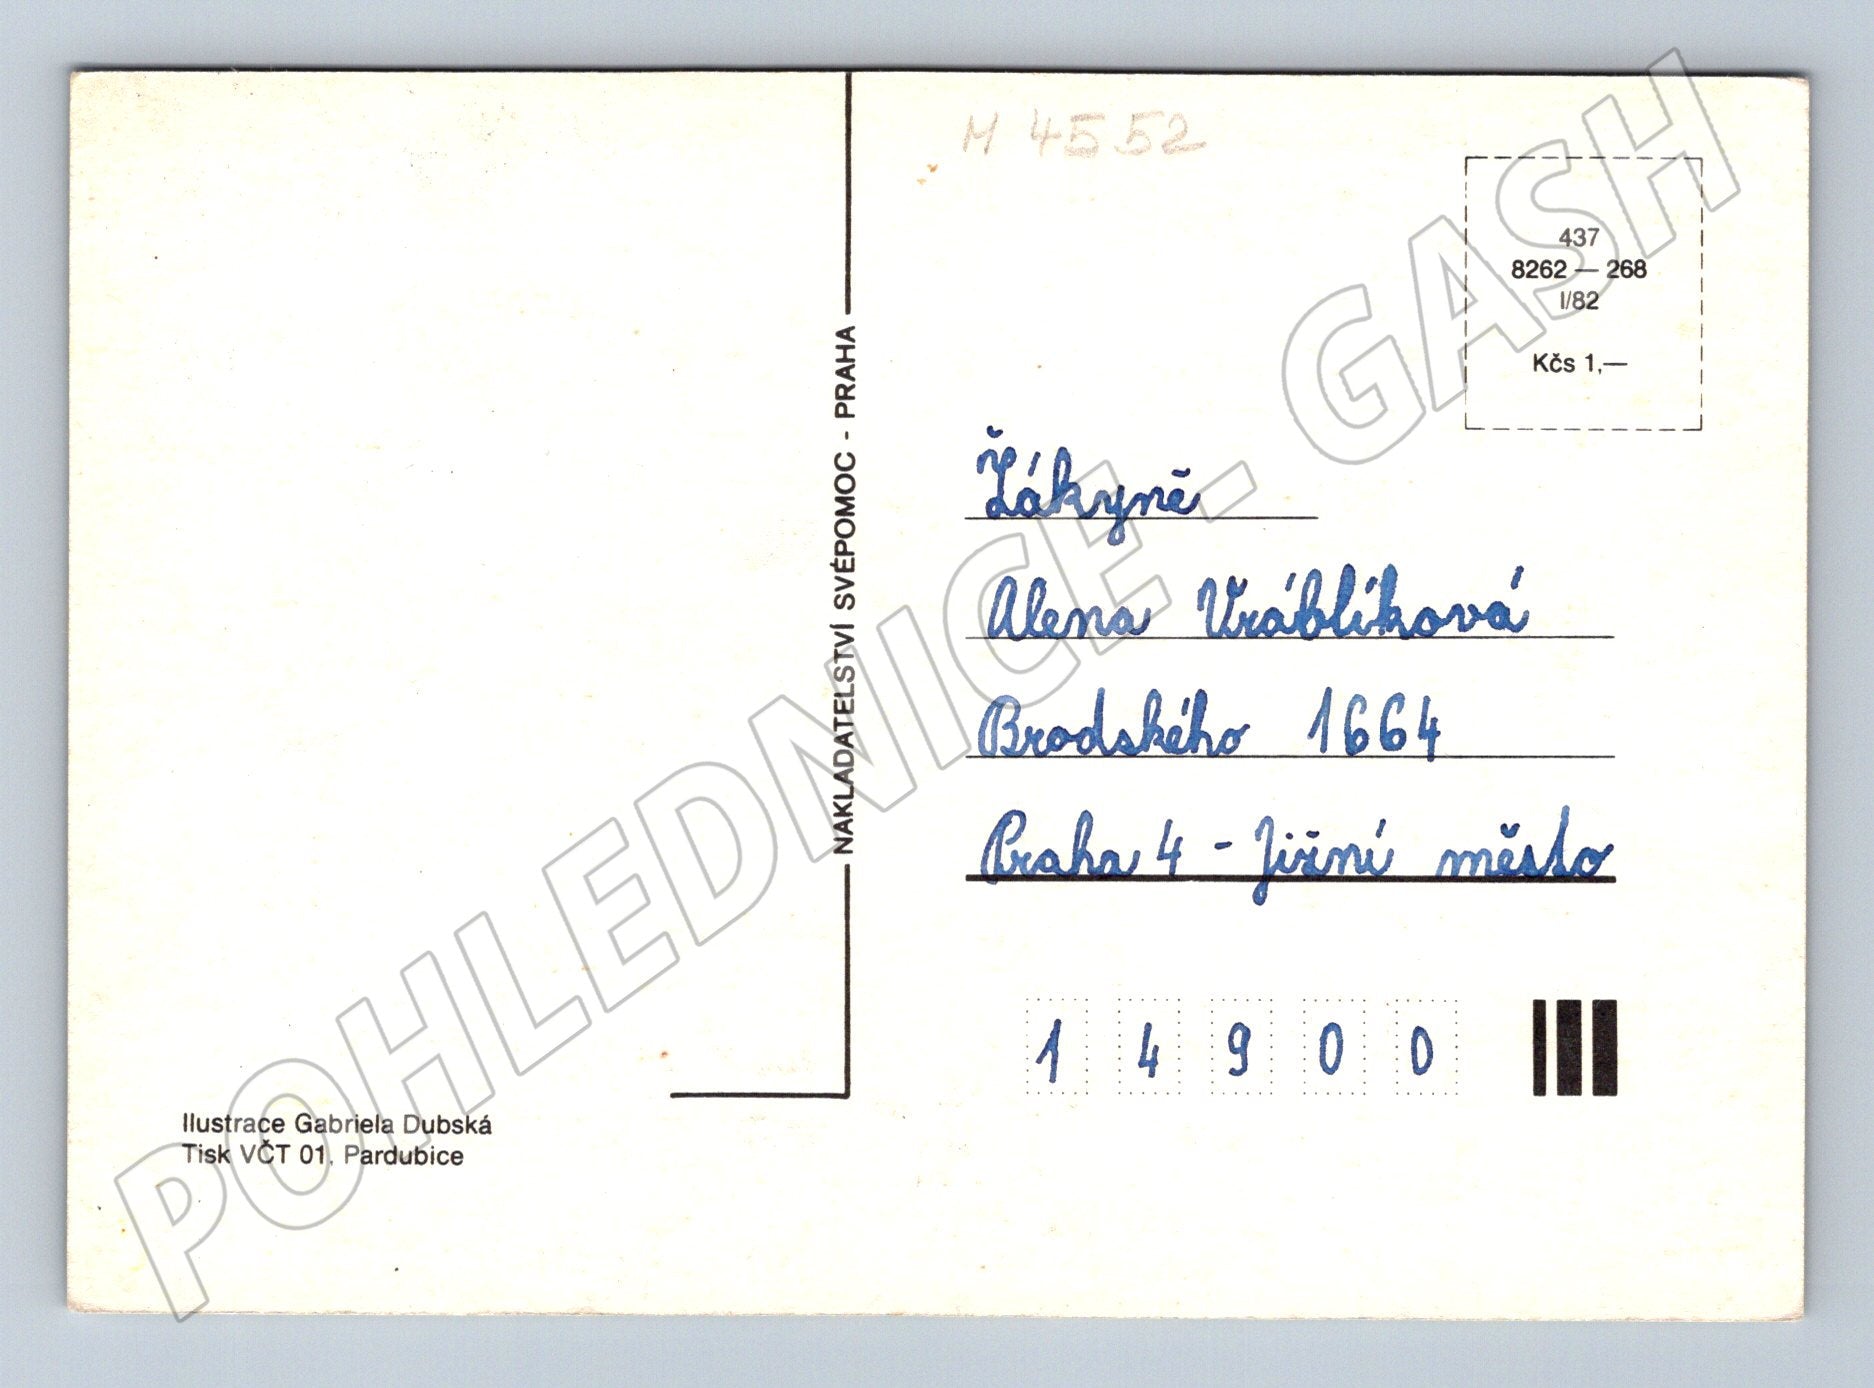 M 4552
437
8262 — 268
I/82
Kčs 1,—
NAKLADATELSTVÍ SVÉPOMOC - PRAHA
Žákyně
Alena Vráblíková
Brodského 1664
Praha 4 - Jižní město
14900
Ilustrace Gabriela Dubská
Tisk VČT 01, Pardubice
POHLEDNICE - GASH